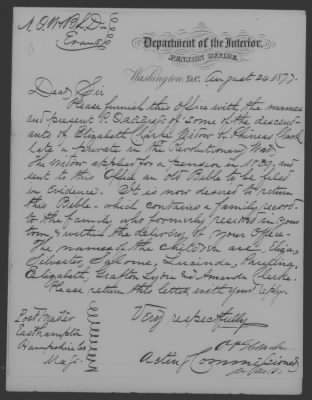 Department of the Interior,
PENSION OFFICE,
Washington, D.C., August 24 1877.
Dear Sir
Please furnish this Office with the names
and present P.O. address of some of the descend-
ants of Elizabeth Clarke widow of Phineas Clark
late a private in the Revolutionary War.
The widow applied for a pension in 1839 and
sent to this Office an old Bible to be filed
in evidence. It is now desired to return
this Bible - which contains a family record
to the family who formerly resided in your
town, & within the delivery of your Office.
The names of the children are,
Silvester, Lucinda,
Elizabeth, Lydia and Amanda Clarke.
Please return this letter with your reply.
Very respectfully
Acting Commissioner
Post Master
Easthampton
Hampshire Co
Mass.